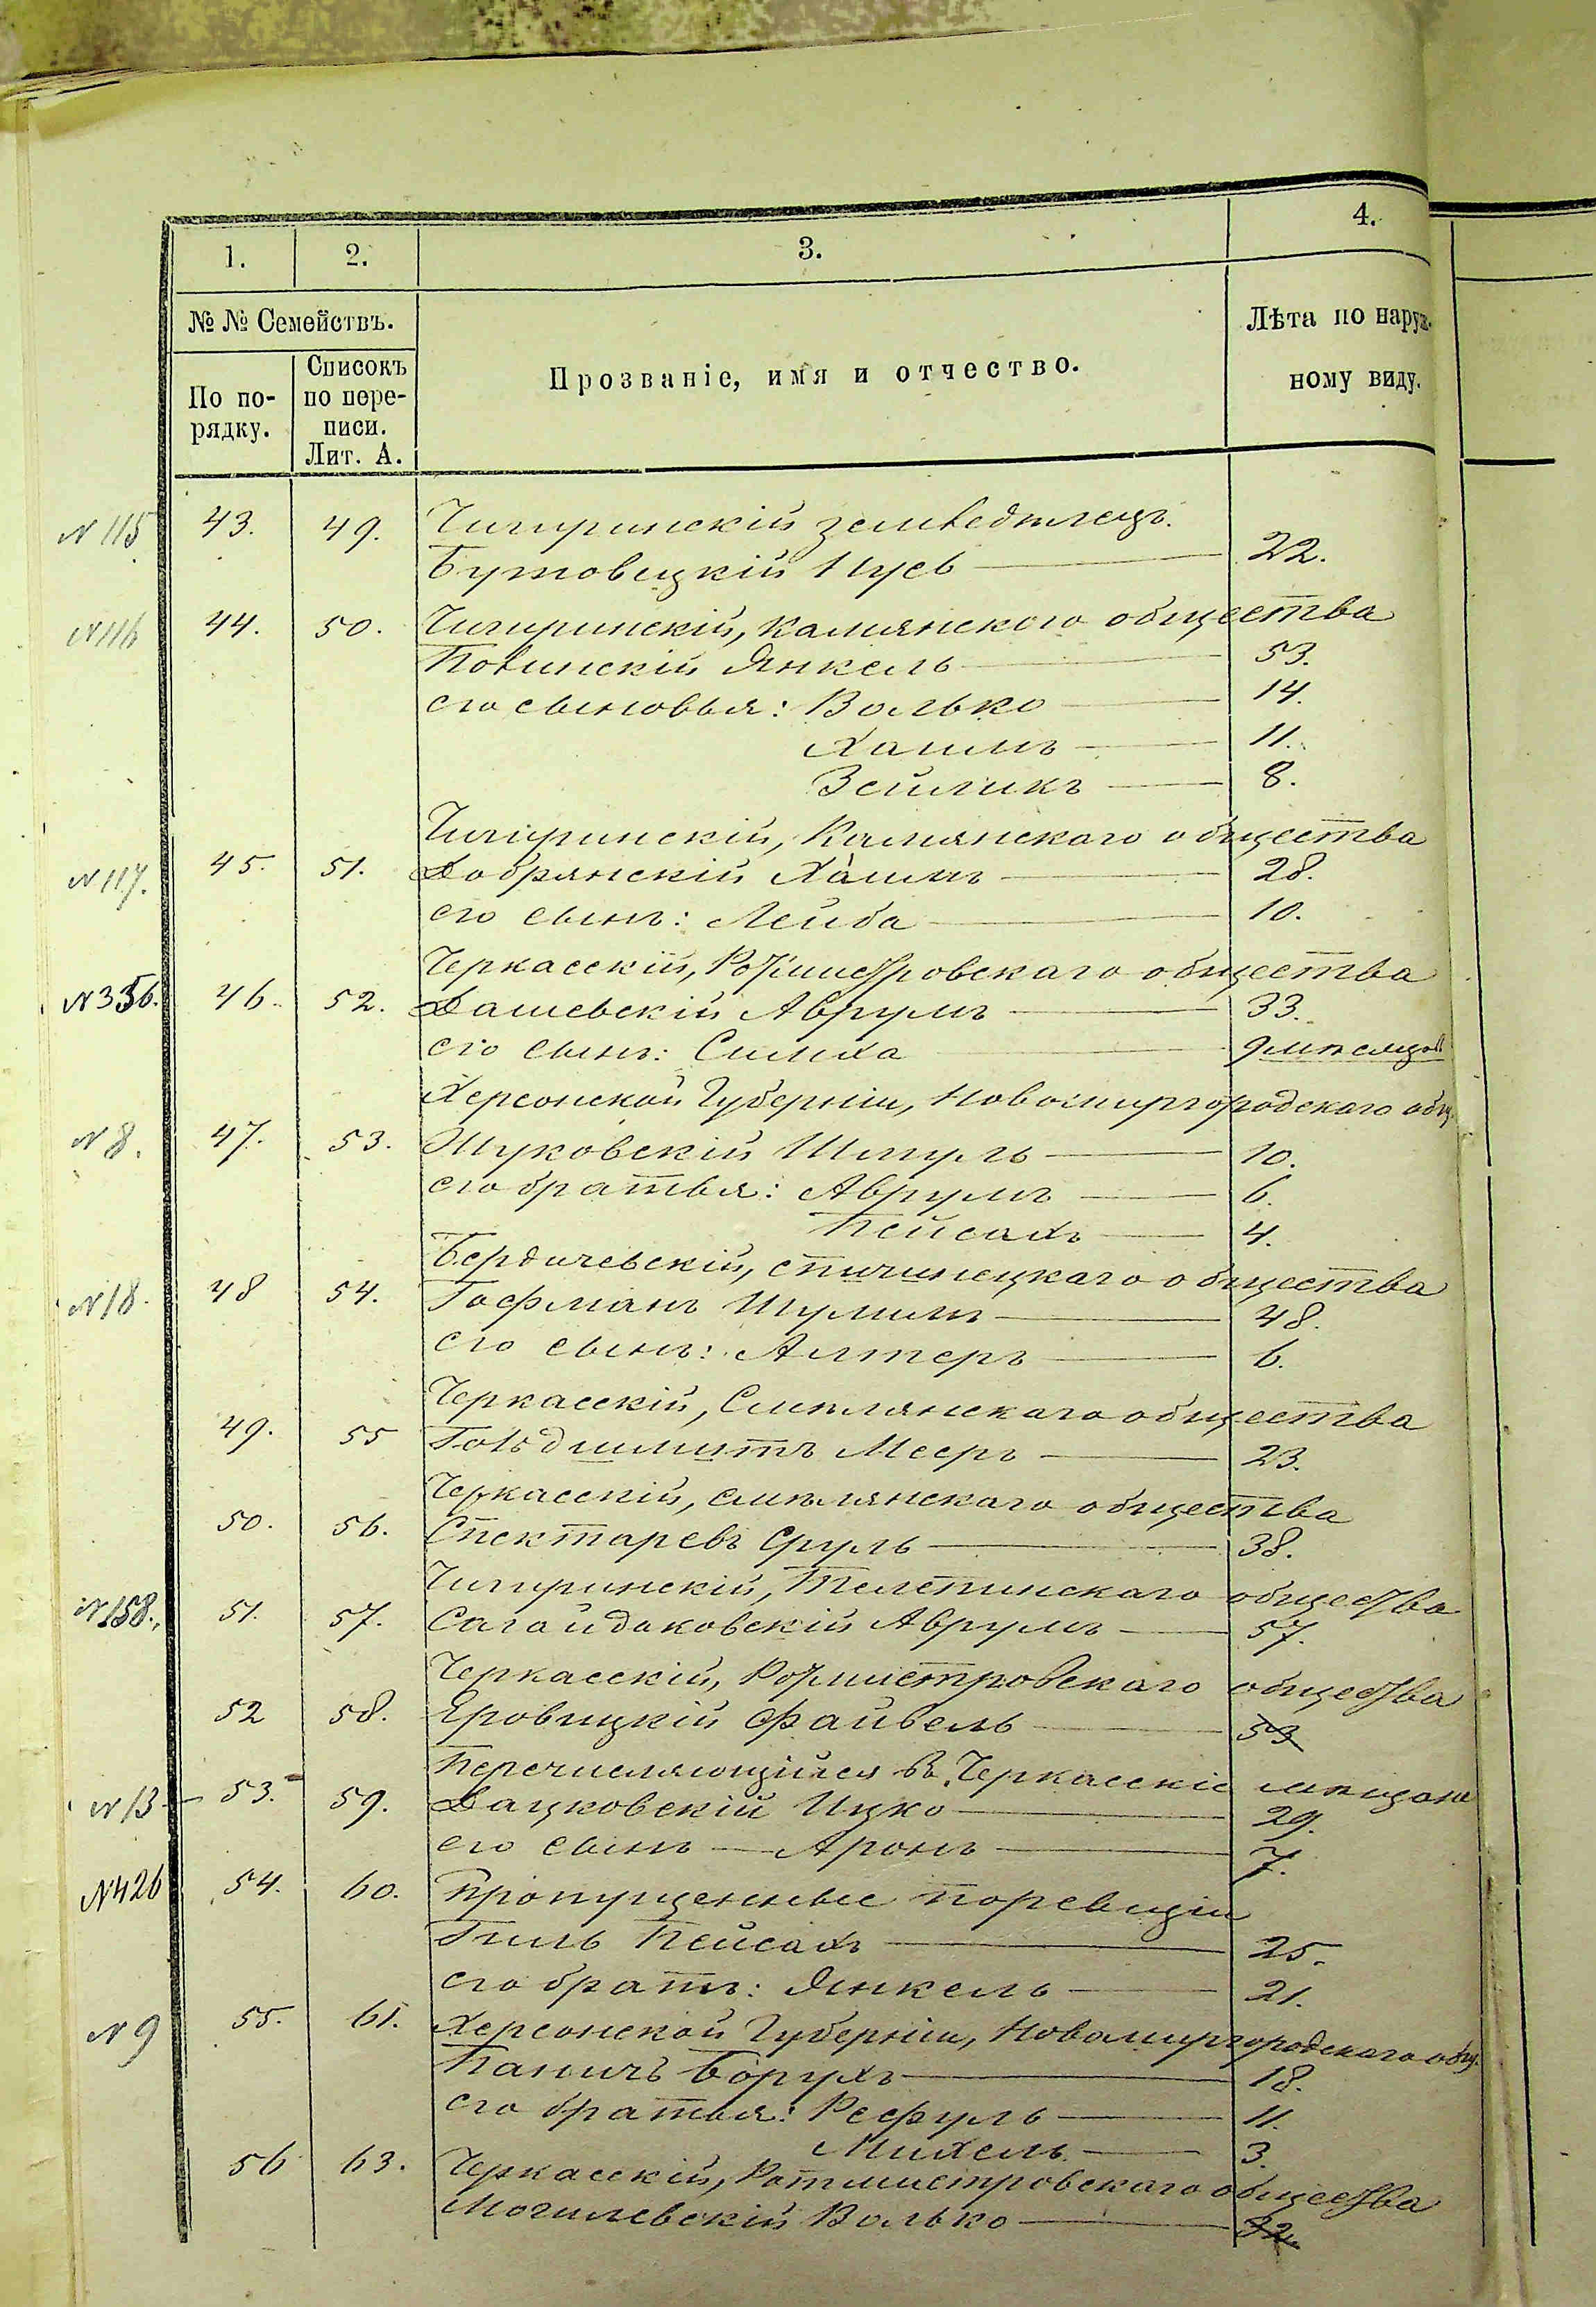 1. 2. 3. 4.
№ № Семействъ.
По порядку.
Списокъ по переписи. Лит. А.
Прозваніе, имя и отчество.
Лѣта по наружному виду.
N 115 43. 49. Чигиринскій земледѣлецъ.
Бутовецкій Нусь 22.
N 116 44. 50. Чигиринскій, Камянского общества
Янкель 53.
его сыновья: Волько 14.
Хаимъ 11.
Зейликъ 8.
Чигиринскій, Камянскаго общества
N 117. 45. 51. Добрянскій Хаимъ 28.
его сынъ: Лейба 10.
Черкасскій, Ротмистровскаго общества
N 356. 46. 52. Дашевскій Аврумъ 33.
его сынъ: Симха 9 мѣсяцов
Херсонской Губерніи, Новомиргородскаго общ.
N 8. 47. 53. Жуковскій Шмуль 10.
его братья: Аврумъ 6.
Пейсахъ 4.
Бердичевскій, спичинецкаго общества
N 18. 48 54. Гофманъ Шулимъ 48.
его сынъ: Алтеръ 6.
Черкасскій, Смѣлянскаго общества
49. 55 Гольдшмитъ Мееръ 23.
Черкасскій, смѣлянскаго общества
50. 56. Спектаревъ Сруль 38.
Чигиринскій, Телепинскаго общества
N 158. 51. 57. Сагайдаковскій Аврумъ 57.
Черкасскій, Ротмистровскаго общества
52 58. Яровицкій Файвель 53
Перечисляющійся въ Черкасскіе мѣщане
N 13 53. 59. Дацковскій Ицко 29.
его сынъ Аронъ 7.
N 426 54. 60. Пропущенные по ревизіи
Гиль Пейсахъ 25.
его братъ: Янкель 21.
N 9 55. 61. Херсонской Губерніи, Новомиргородскаго общ.
Паничъ Борухъ 18.
его братья: Рефуль 11.
Михель 3.
56 63. Черкасскій, Ротмистровскаго общества
Могилевскій Волько 32.